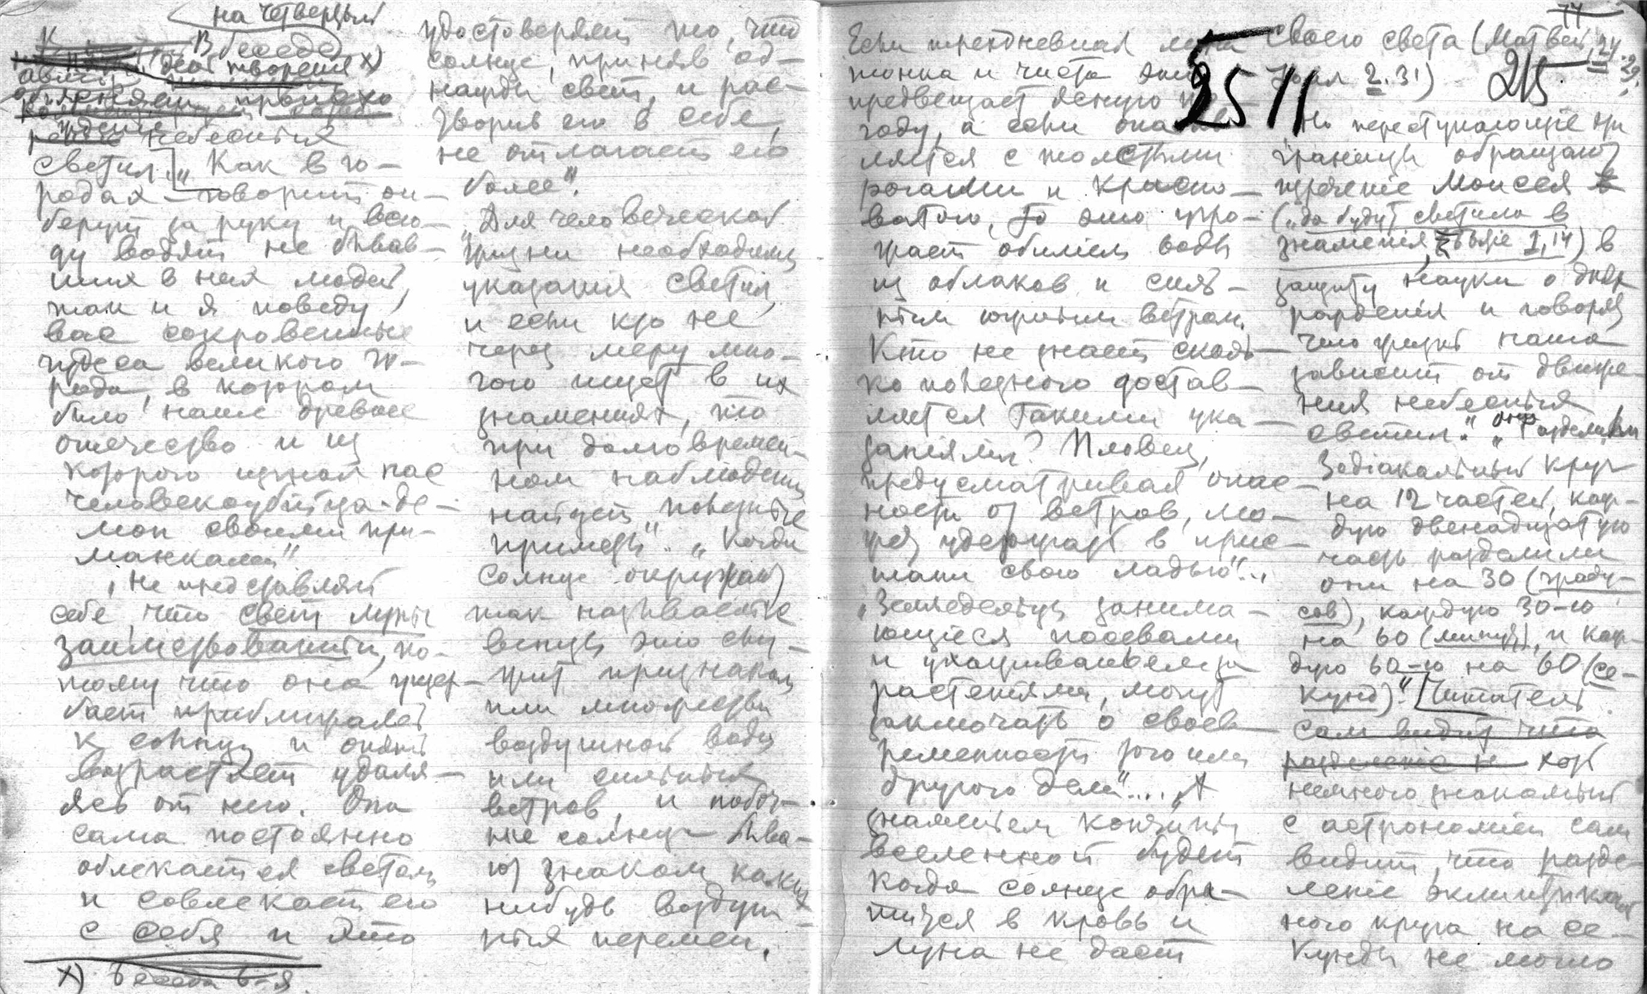 на четвертый
В беседе
день творения х)
небесныя
светил. „Как в го-
родах — говорит он —
берут за руку и всю-
ду водят не бывав-
ших в них людей,
так и я поведу
вас сокровенные
чудеса великого го-
рода, в котором
было наше древнее
отечество и из
которого изгнал нас
человекоубийца-де-
мон своими при-
манками“.
„Не представляй
себе, что свет луны
заимствованный, по-
тому что она ущер-
бает приближаясь
к солнцу и опять
возрастает удаля-
ясь от него. Она
сама постоянно
облекается светом
и совлекает его
с себя и это
х) Беседа 6-я
удостоверяет то, что
солнце, приняв од-
нажды свет, и рас-
творив его в себе,
не отлагает его
более“.
„Для человеческой
жизни необходимы
указания светил,
и если кто не
через меру мно-
гого ищет в их
знамениях, то
при долговремен-
ном наблюдении
найдет полезные
приметы“. „Когда
солнце окружает
так называемые
венцы это слу-
жит признаком
или множества
воздушной воды
или сильных
ветров, и побоч-
ные солнца быва-
ют знаком каких
нибудь воздуш-
ных перемен.
Если трехдневная луна
тонка и чиста это
предвещает ясную по-
году, а если она
ляется с толстыми
рогами и красно-
ватою, то это угро-
жает обилием воды
из облаков и силь-
ным южным ветром.
Кто не знает сколь-
ко полезного достав-
ляется такими ука-
заниями? Пловец,
предусматривая опас-
ности от ветров, мо-
жет удержать в прис-
тани свою ладью“...
„Земледельцы занима-
ющиеся посевами
и ухаживаньем за
растениями, могут
заключать о своев-
ременности того или
другого дела“.... „А
знамением кончины
вселенной будет
когда солнце обра-
тится в кровь и
луна не даст
77
25 11
215
своего света (Матвей, 24. 29,
Иоил 2.31)
Но переступающие
границы обращают
изречение Моисея
(„да будут светила в
знамения, Бытие 1,14) в
защиту науки о днях
рождения и говорят
что жизнь наша
зависит от движе-
ния небесных
светил“. „Они разделили
Зодиакальный круг
на 12 частей, каж-
дую двенадцатую
часть разделили
они на 30 (граду-
сов), каждую 30-ю
на 60 (минут), и каж-
дую 60-ю на 60 (се-
кунд)“. Читатель
сам видит что
разделение и хоть
немного знакомый
с астрономией сам
видит, что разде-
ление эклиптикаль
ного круга на се-
кунды не могло